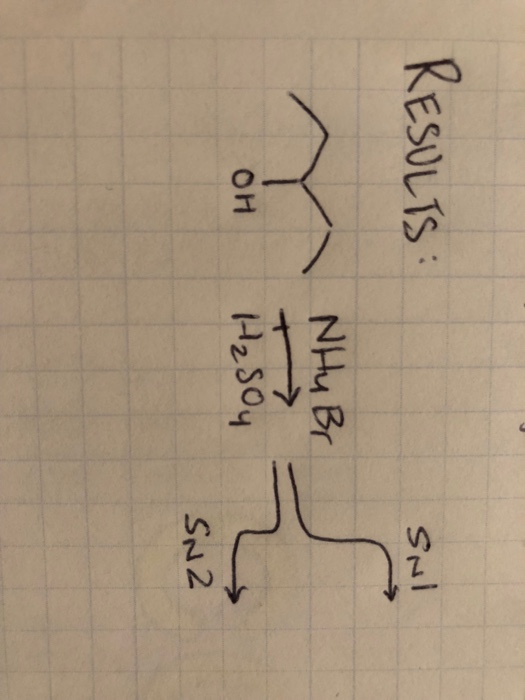 RESULTS:
OH
NH4Br
H2SO4
SN1
SN2